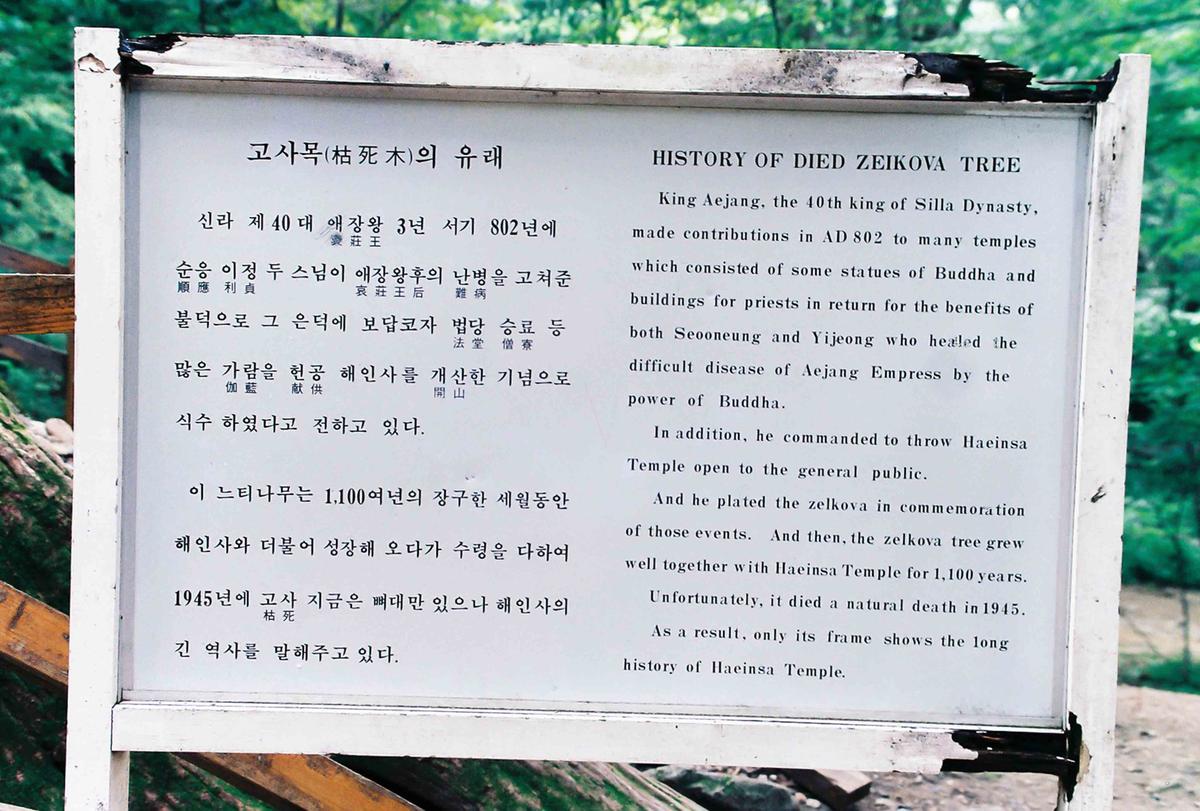 고사목(枯死木)의 유래
신라 제40대 애장왕 3년 서기 802년에
哀莊王
순응 이정 두 스님이 애장왕후의 난병을 고쳐준
順應 利貞 哀莊王后 難病
불덕으로 그 은덕에 보답코자 법당 승료 등
法堂 僧寮
많은 가람을 헌공 해인사를 개산한 기념으로
伽藍 献供 開山
식수 하였다고 전하고 있다.
이 느티나무는 1,100여년의 장구한 세월동안
해인사와 더불어 성장해 오다가 수령을 다하여
1945년에 고사 지금은 뼈대만 있으나 해인사의
枯死
긴 역사를 말해주고 있다.
HISTORY OF DIED ZEIKOVA TREE
King Aejang, the 40th king of Silla Dynasty,
made contributions in AD 802 to many temples
which consisted of some statues of Buddha and
buildings for priests in return for the benefits of
both Seooneung and Yijeong who healed the
difficult disease of Aejang Empress by the
power of Buddha.
In addition, he commanded to throw Haeinsa
Temple open to the general public.
And he plated the zelkova in commemoration
of those events. And then, the zelkova tree grew
well together with Haeinsa Temple for 1,100 years.
Unfortunately, it died a natural death in 1945.
As a result, only its frame shows the long
history of Haeinsa Temple.